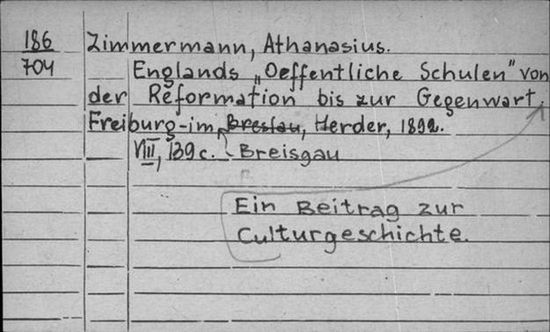 186
704
Zimmermann, Athanasius.
Englands „Oeffentliche Schulen" von
der Reformation bis zur Gegenwart,
Freiburg-im Breslau, Herder, 1892.
VIII, 139 c. Breisgau
Ein Beitrag zur
Culturgeschichte.